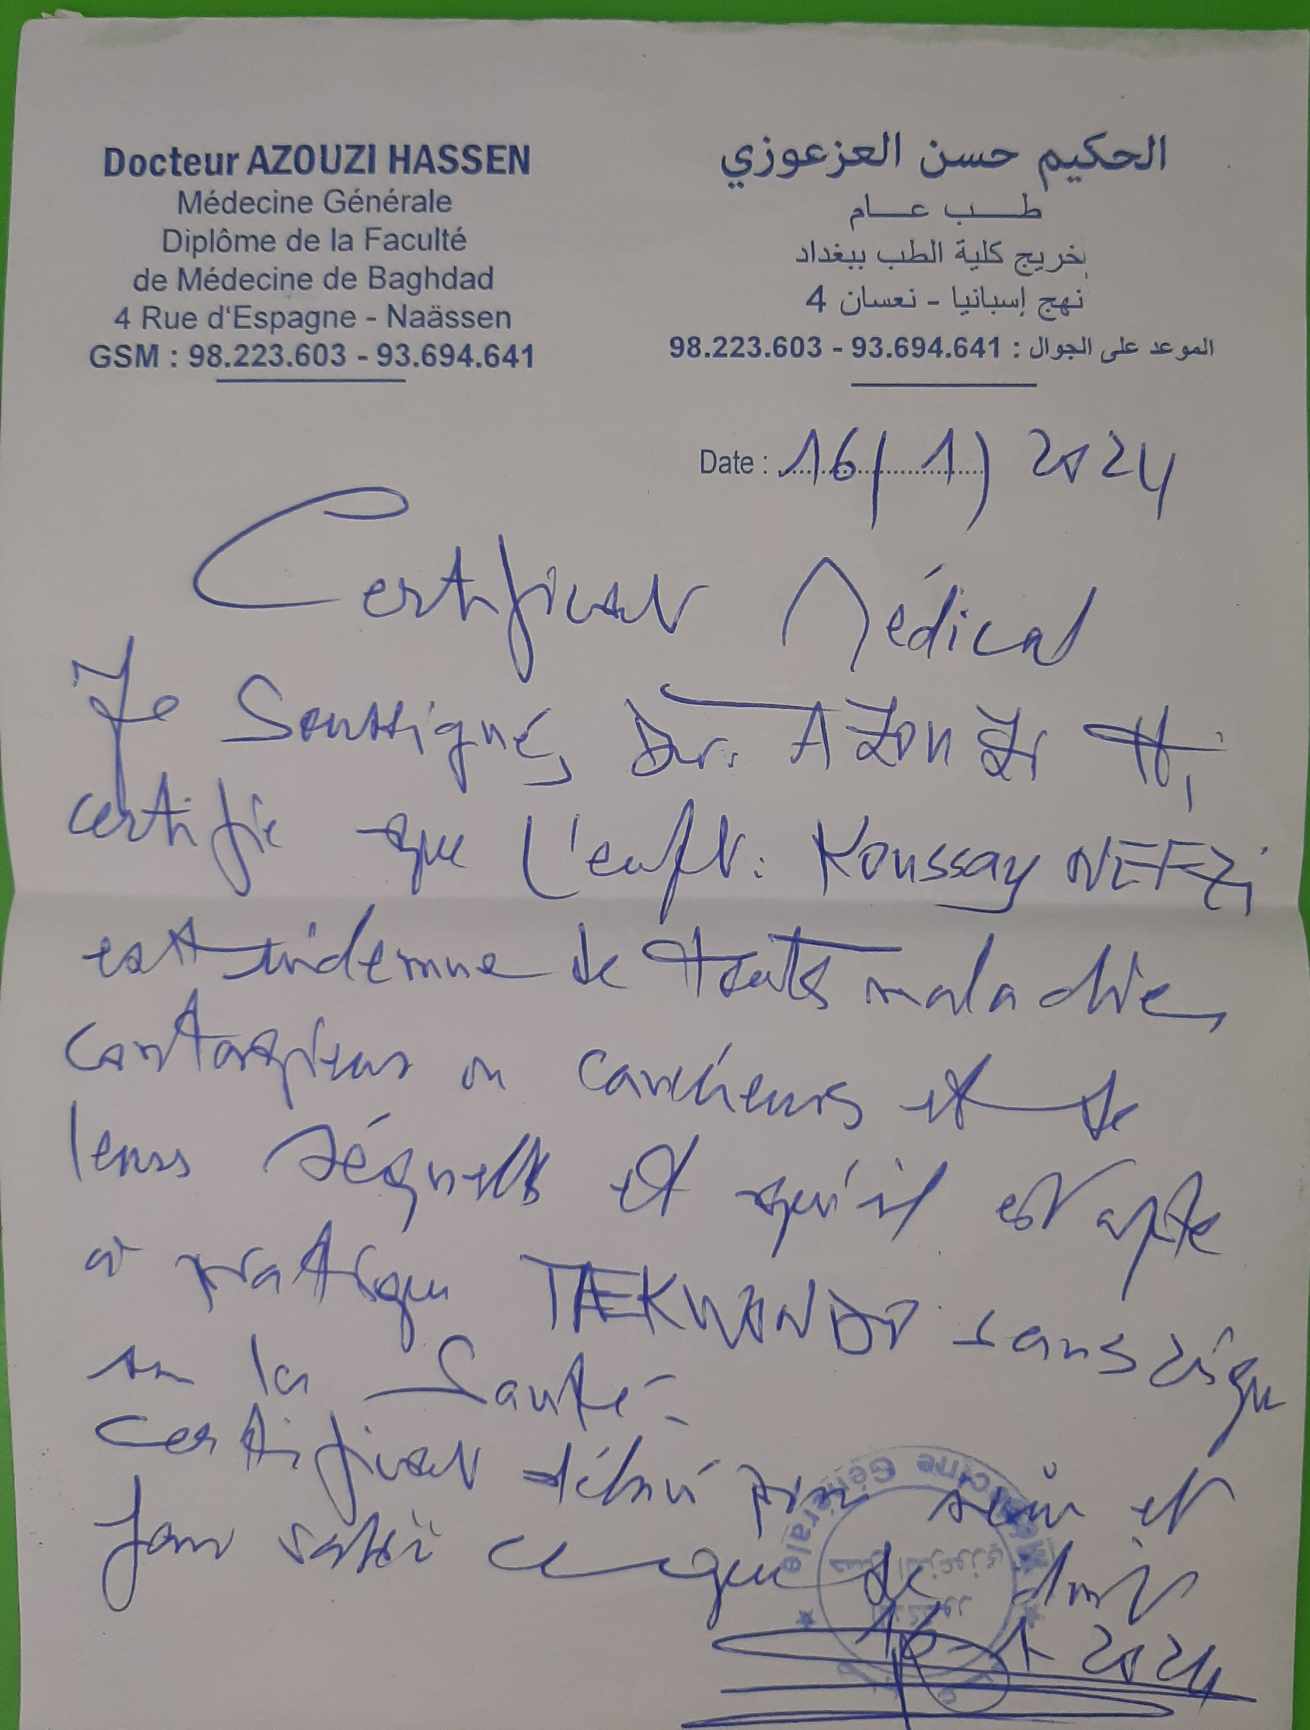 Docteur AZOUZI HASSEN
Médecine Générale
Diplôme de la Faculté
de Médecine de Baghdad
4 Rue d'Espagne - Naässen
GSM : 98.223.603 - 93.694.641
الحكيم حسن العزعوزي
طب عام
خريج كلية الطب ببغداد
نهج إسبانيا - نعسان 4
الموعد على الجوال : 93.694.641 - 98.223.603
Date : 16/1/2024
Certificat Médical
Je Soussigné, Dr. AZOUZI H,
certifie que L'enft. Koussay NEFZi
est indemne de toutes maladies
contagieuses ou et de
leurs séquelles et qu'il est apte
à pratiquer TAEKWANDO sans risque
sur la Santé.
Certificat délivré pour et
faire valoir ce que de droit
16-1-2024
Médecine Générale